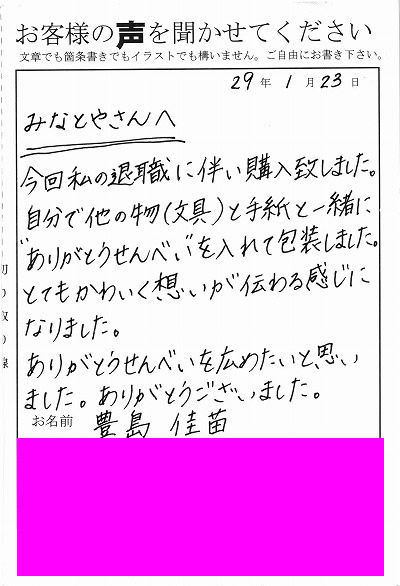 お客様の声を聞かせてください
文章でも箇条書きでもイラストでも構いません。ご自由にお書き下さい。
29年 1月 23日
みなとやさんへ
今回私の退職に伴い購入致しました。
自分で他の物(文具)と手紙と一緒に
"ありがとうせんべい"を入れて包装しました。
とてもかわいく想いが伝わる感じに
なりました。
ありがとうせんべいを広めたいと思い
ました。ありがとうございました。
お名前 豊島 佳苗
切り取り線